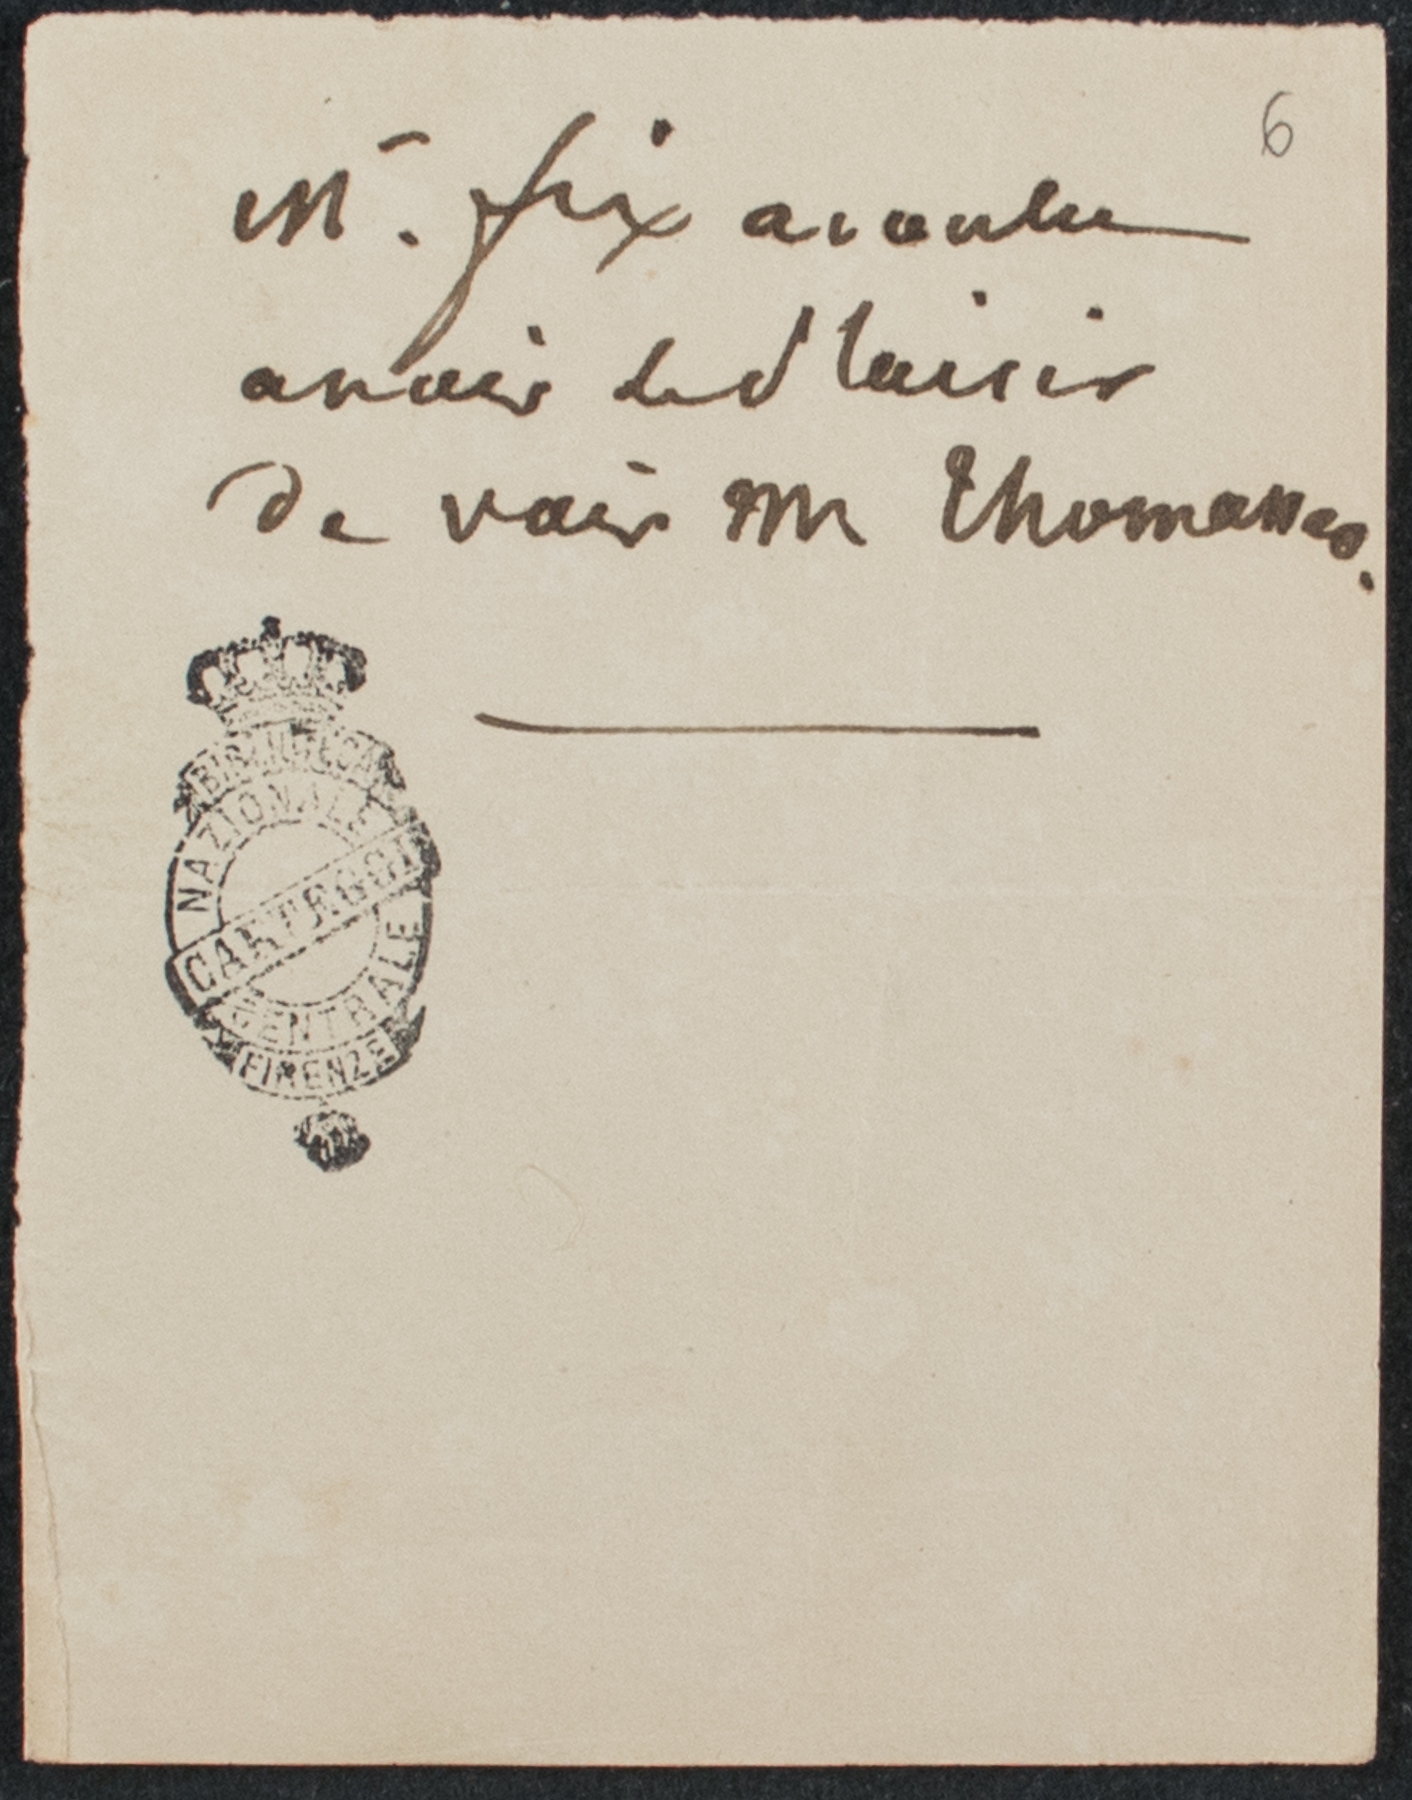 6
Mr. fix a voulu
avoir le plaisir
de voir Mr Thomasseo.
BIBLIOTECA
NAZIONALE
CARTEGGI
CENTRALE
FIRENZE